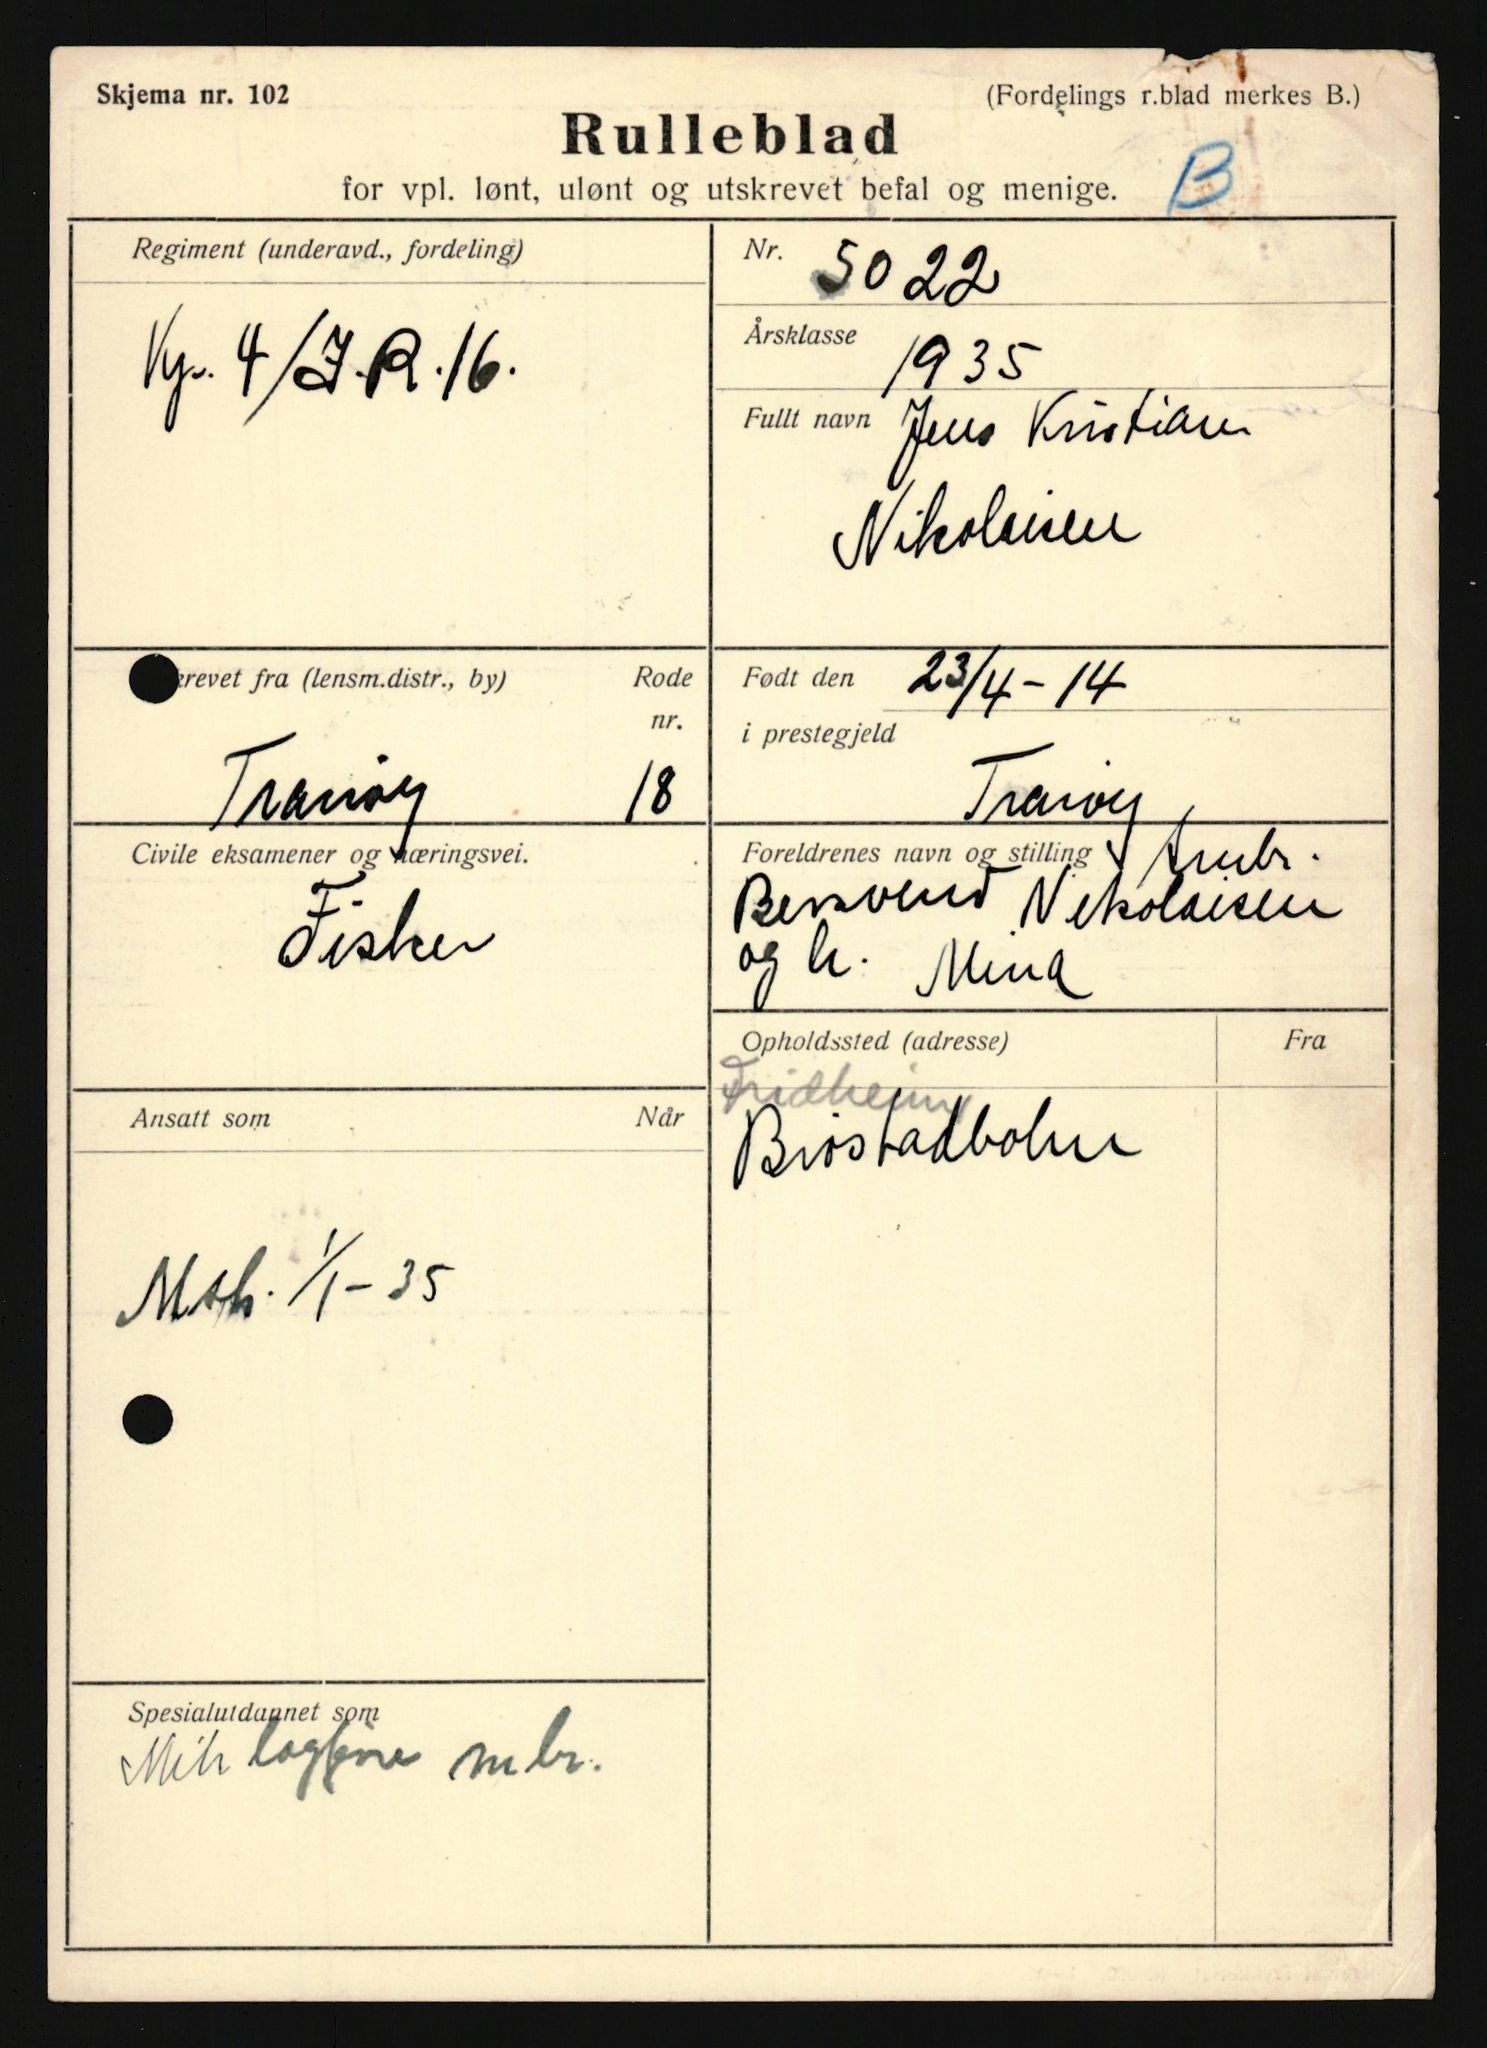 Skjema nr. 102
(Fordelings r.blad merkes B.)
Rulleblad
for vpl. lønt, ulønt og utskrevet befal og menige.
B
Regiment (underavd., fordeling)
Kp. 4/I.R.16.
Nr. 5022
Årsklasse
1935
Fullt navn Jens Kristian
Nikolaisen
krevet fra (lensm.distr., by)
Rode
nr.
Tranøy 18
Født den 23/4-14
i prestegjeld
Tranøy
Civile eksamener og næringsvei.
Fisker
Foreldrenes navn og stilling Arub.
Bersvend Nikolaisen
og h. Mina
Opholdssted (adresse)
Fra
Fridheim
Brøstadbotn
Ansatt som
Når
Msk. 1/1-35
Spesialutdannet som
mbr.